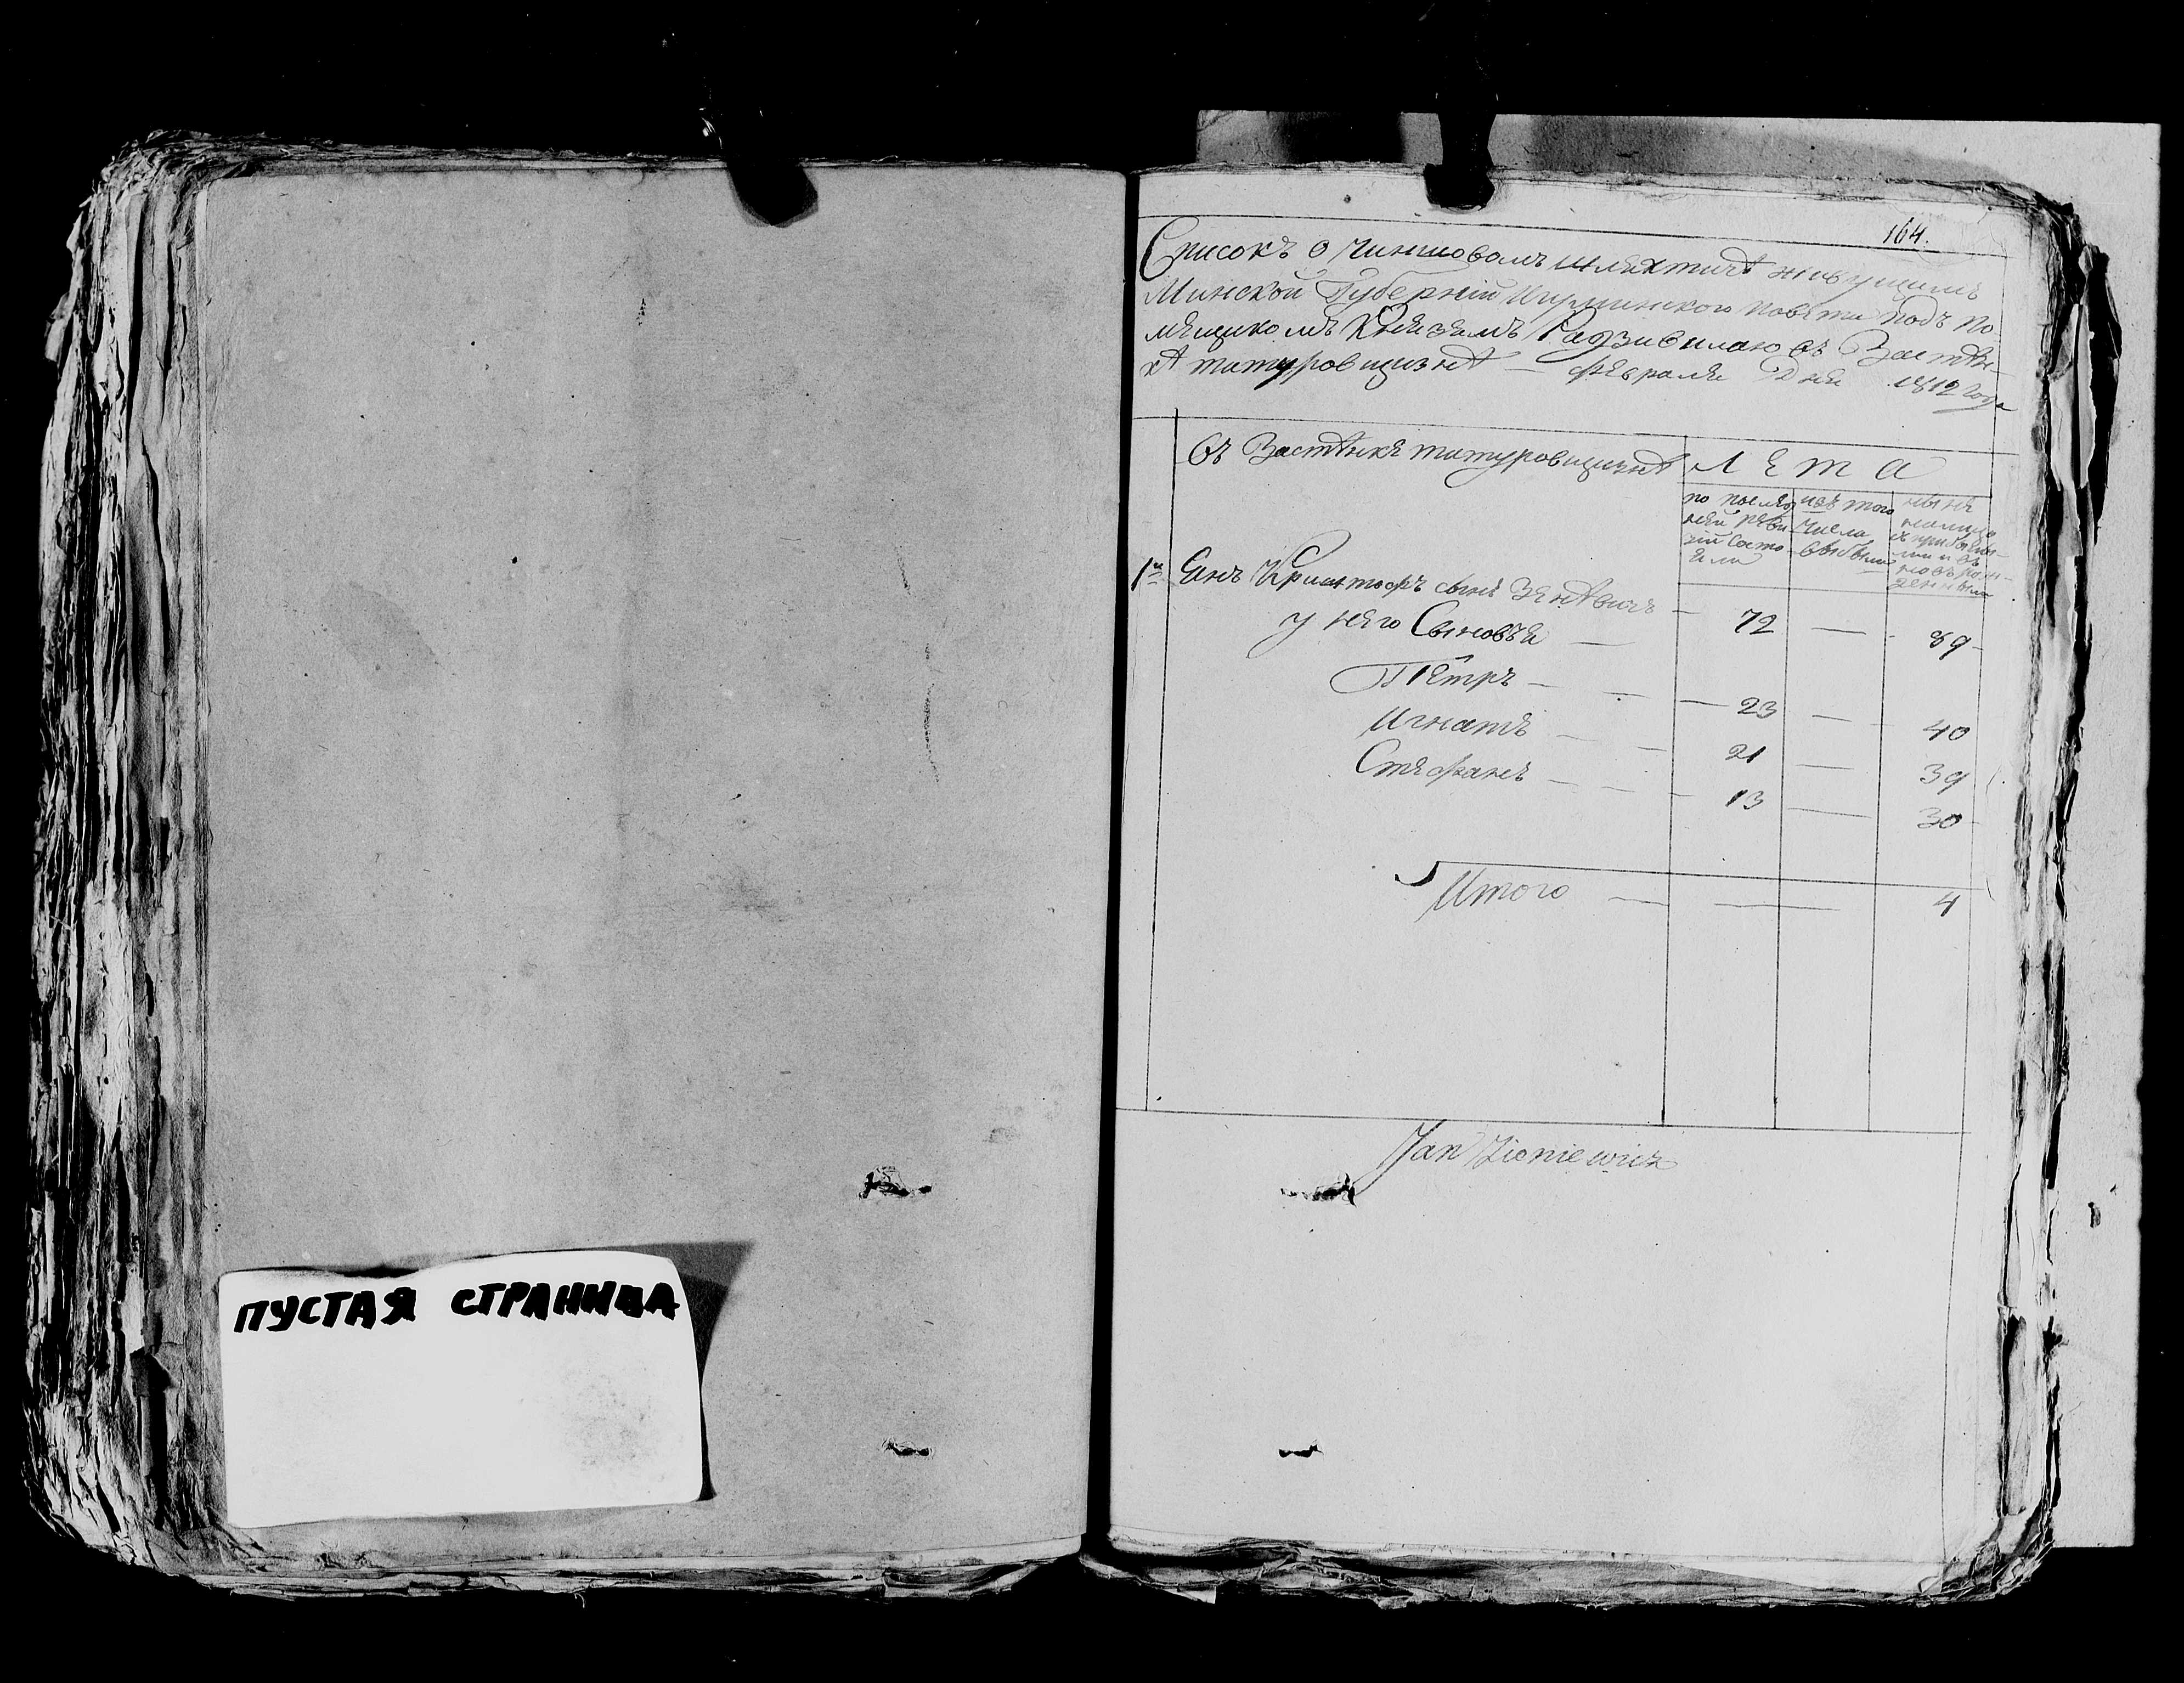 164.
Списокъ о Чиншовомъ шляхтичѣ живущимъ
Минской Губерніи Игуменского Повѣта подъ по
мѣщикомъ Княземъ Радзивилломъ Застѣн-
кѣ татуровщизнѣ — февраля Дня 1812 года
Въ Застѣнкѣ татуровщизнѣ
Лѣта
по послѣд
ней реви
зіи состо
яли
изъ того
числа
выбыли
нынѣ
налицо
съ прибылы-
ми и въ
новорож-
денными
1й Янъ Криштофъ сынъ Зеневичъ — 72 — 89
у него Сыновья —
Пётръ — — 23 — 40
Игнатъ — — 21 — 39
Стефанъ — — 13 — 30
Итого — — 4
Jan Zieniewicz
ПУСТАЯ СТРАНИЦА